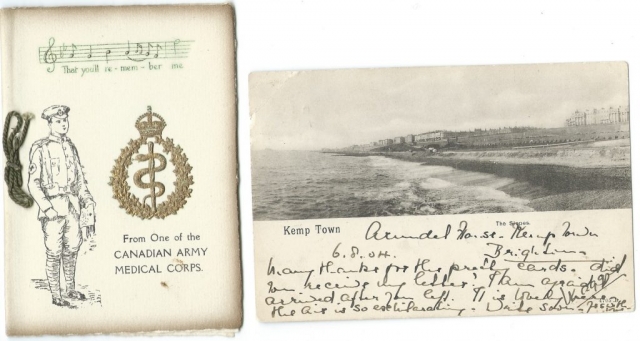 That you'll re-mem-ber me
From One of the
CANADIAN ARMY
MEDICAL CORPS.
Kemp Town
Arundel House. Kemp Town
6.8.04. Brighton
Many thanks for the pretty cards. Did
you receive my letter?
arrived after you left. It is
the air is so exhilarating.